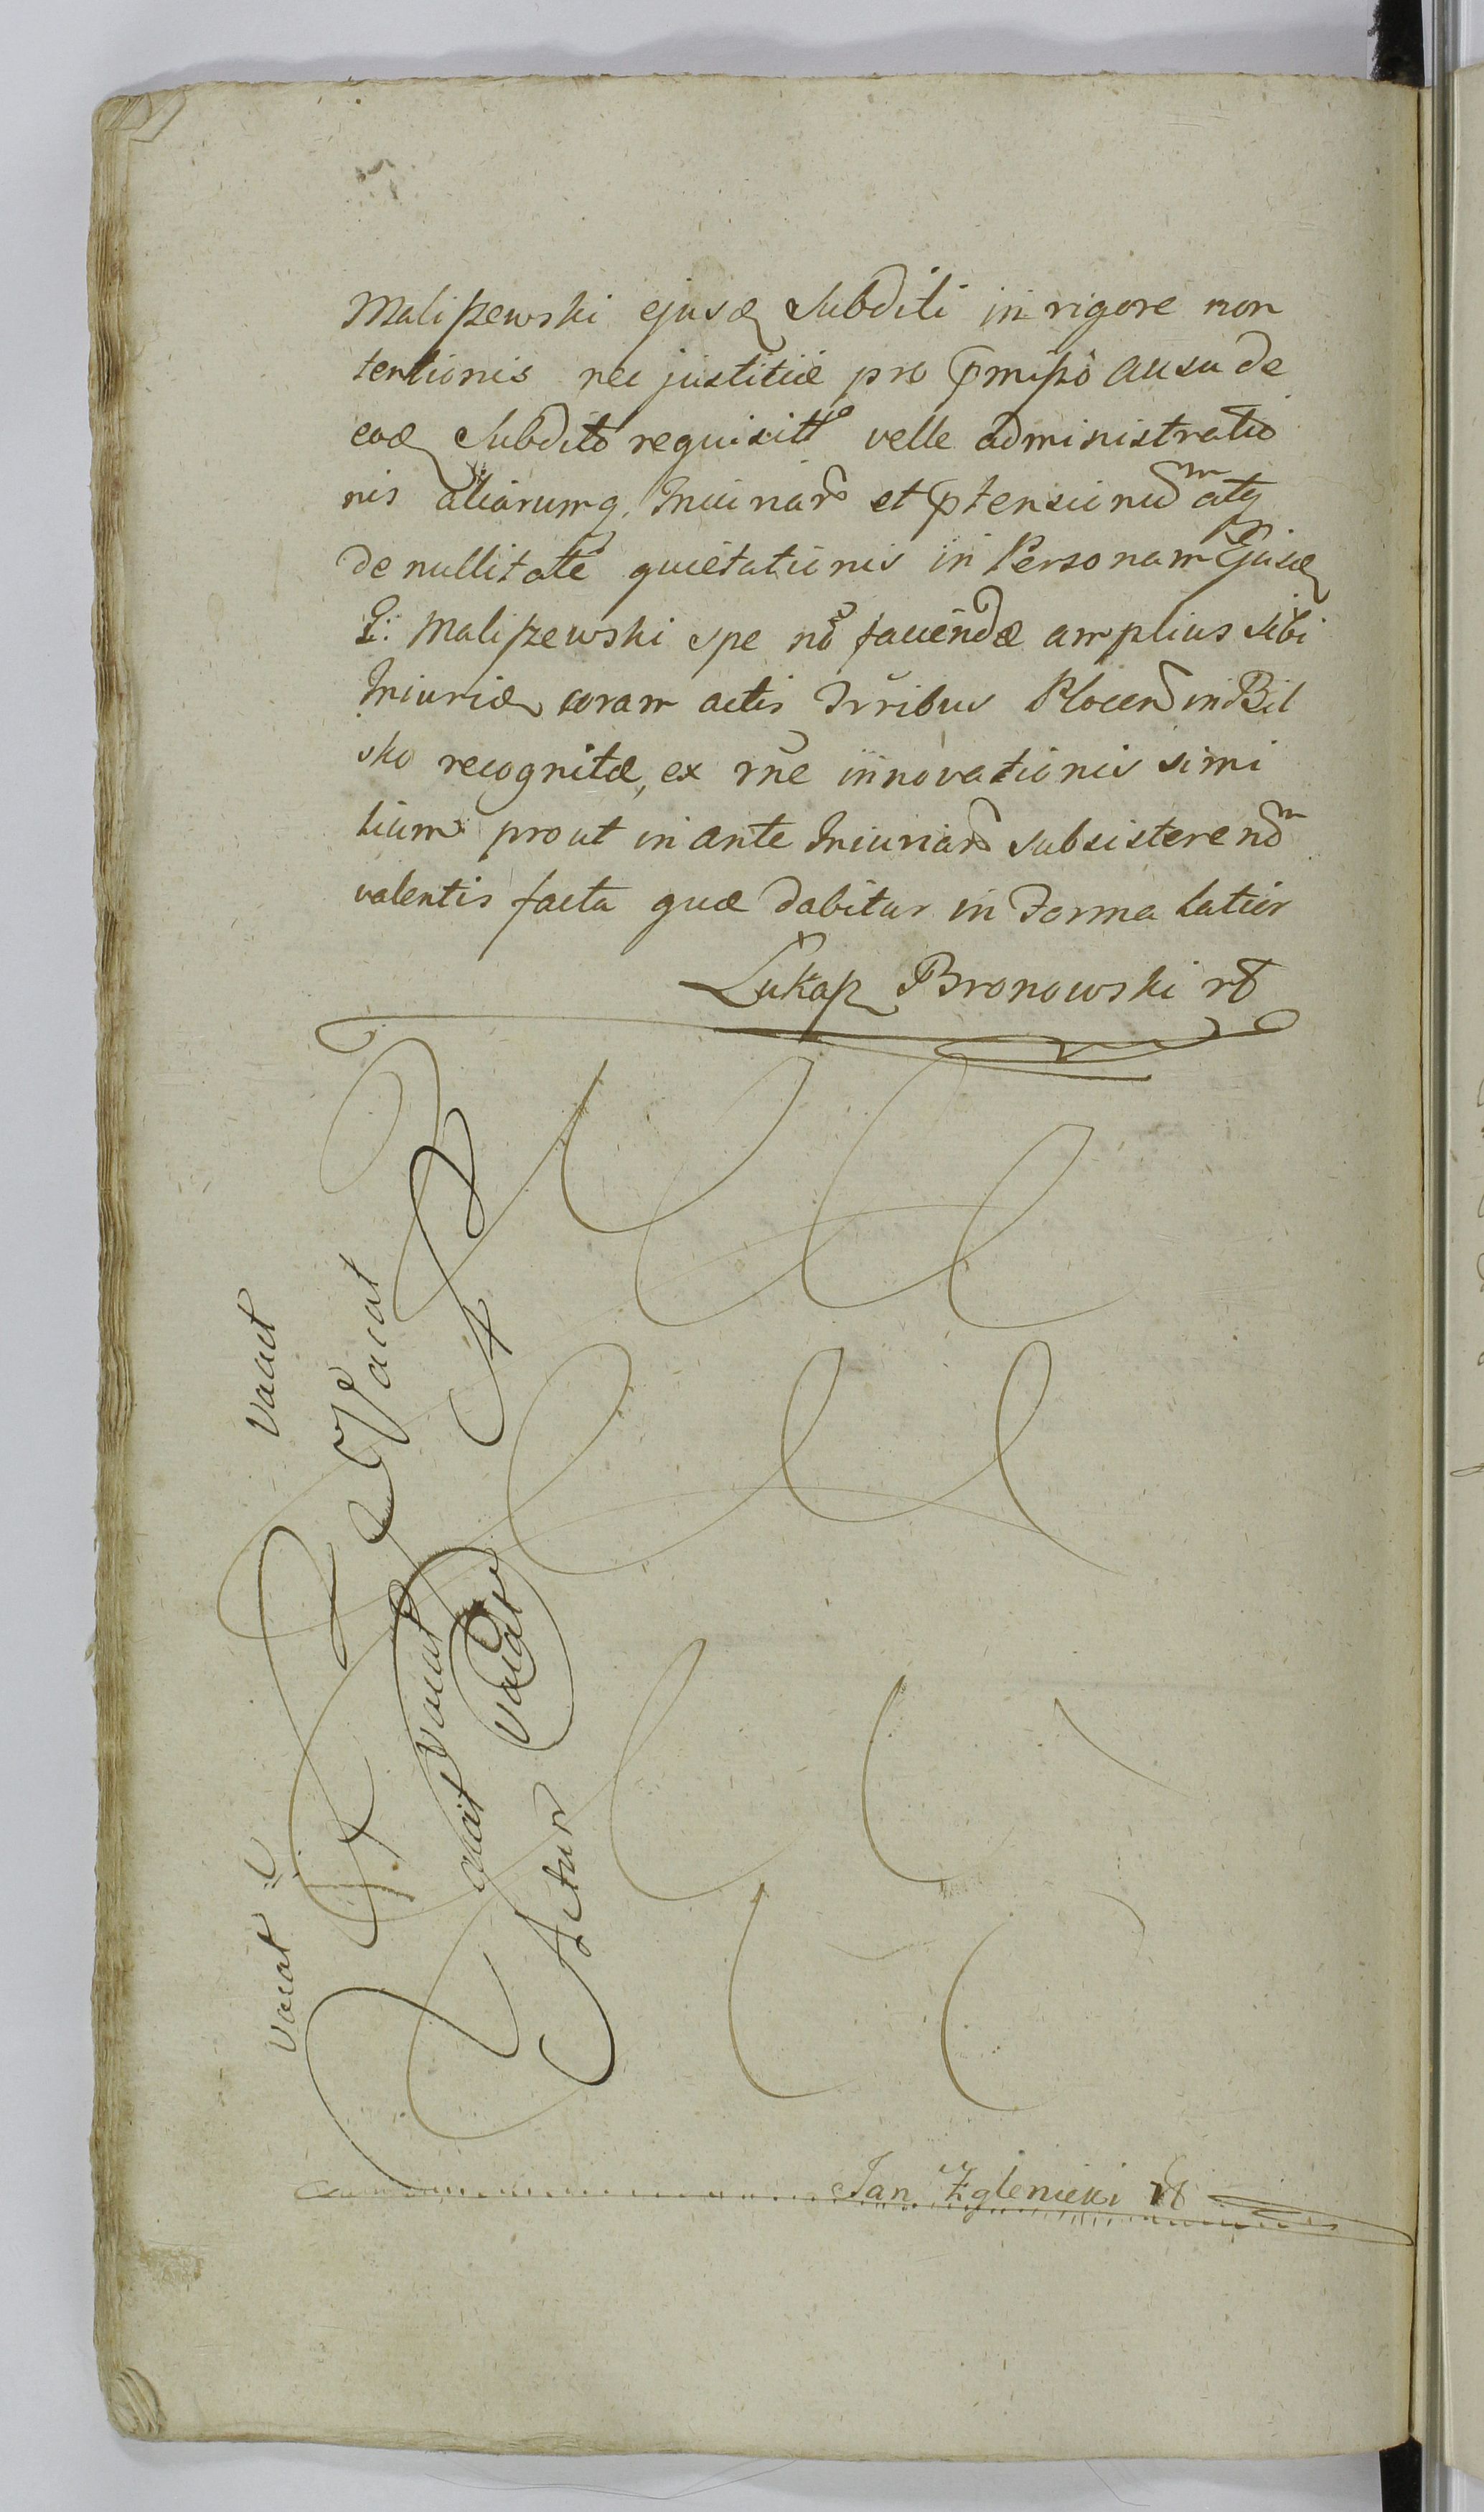 Maliszewski ejusd Subditi in rigore non
tentionis nec justitiæ pro pmisso ausu de
eod Subdito requisitto velle administratio
nis aliarumq Iniuriar et ptensionum atq
de nullitate quietationis in Personam Ejusd
G: Maliszewski spe no faciendæ amplius sibi
Iniuriæ coram actis Trribus Plocen in Bil
sko recognitæ, ex rne innovationis simi
lium prout in ante Iniuriar subsistere non
valentis facta quæ dabitur in Forma latior
Łukasz Bronowski
Vacat
Vacat
Vacat
Vacat
Vacat
Actur
Jan Zglenicki